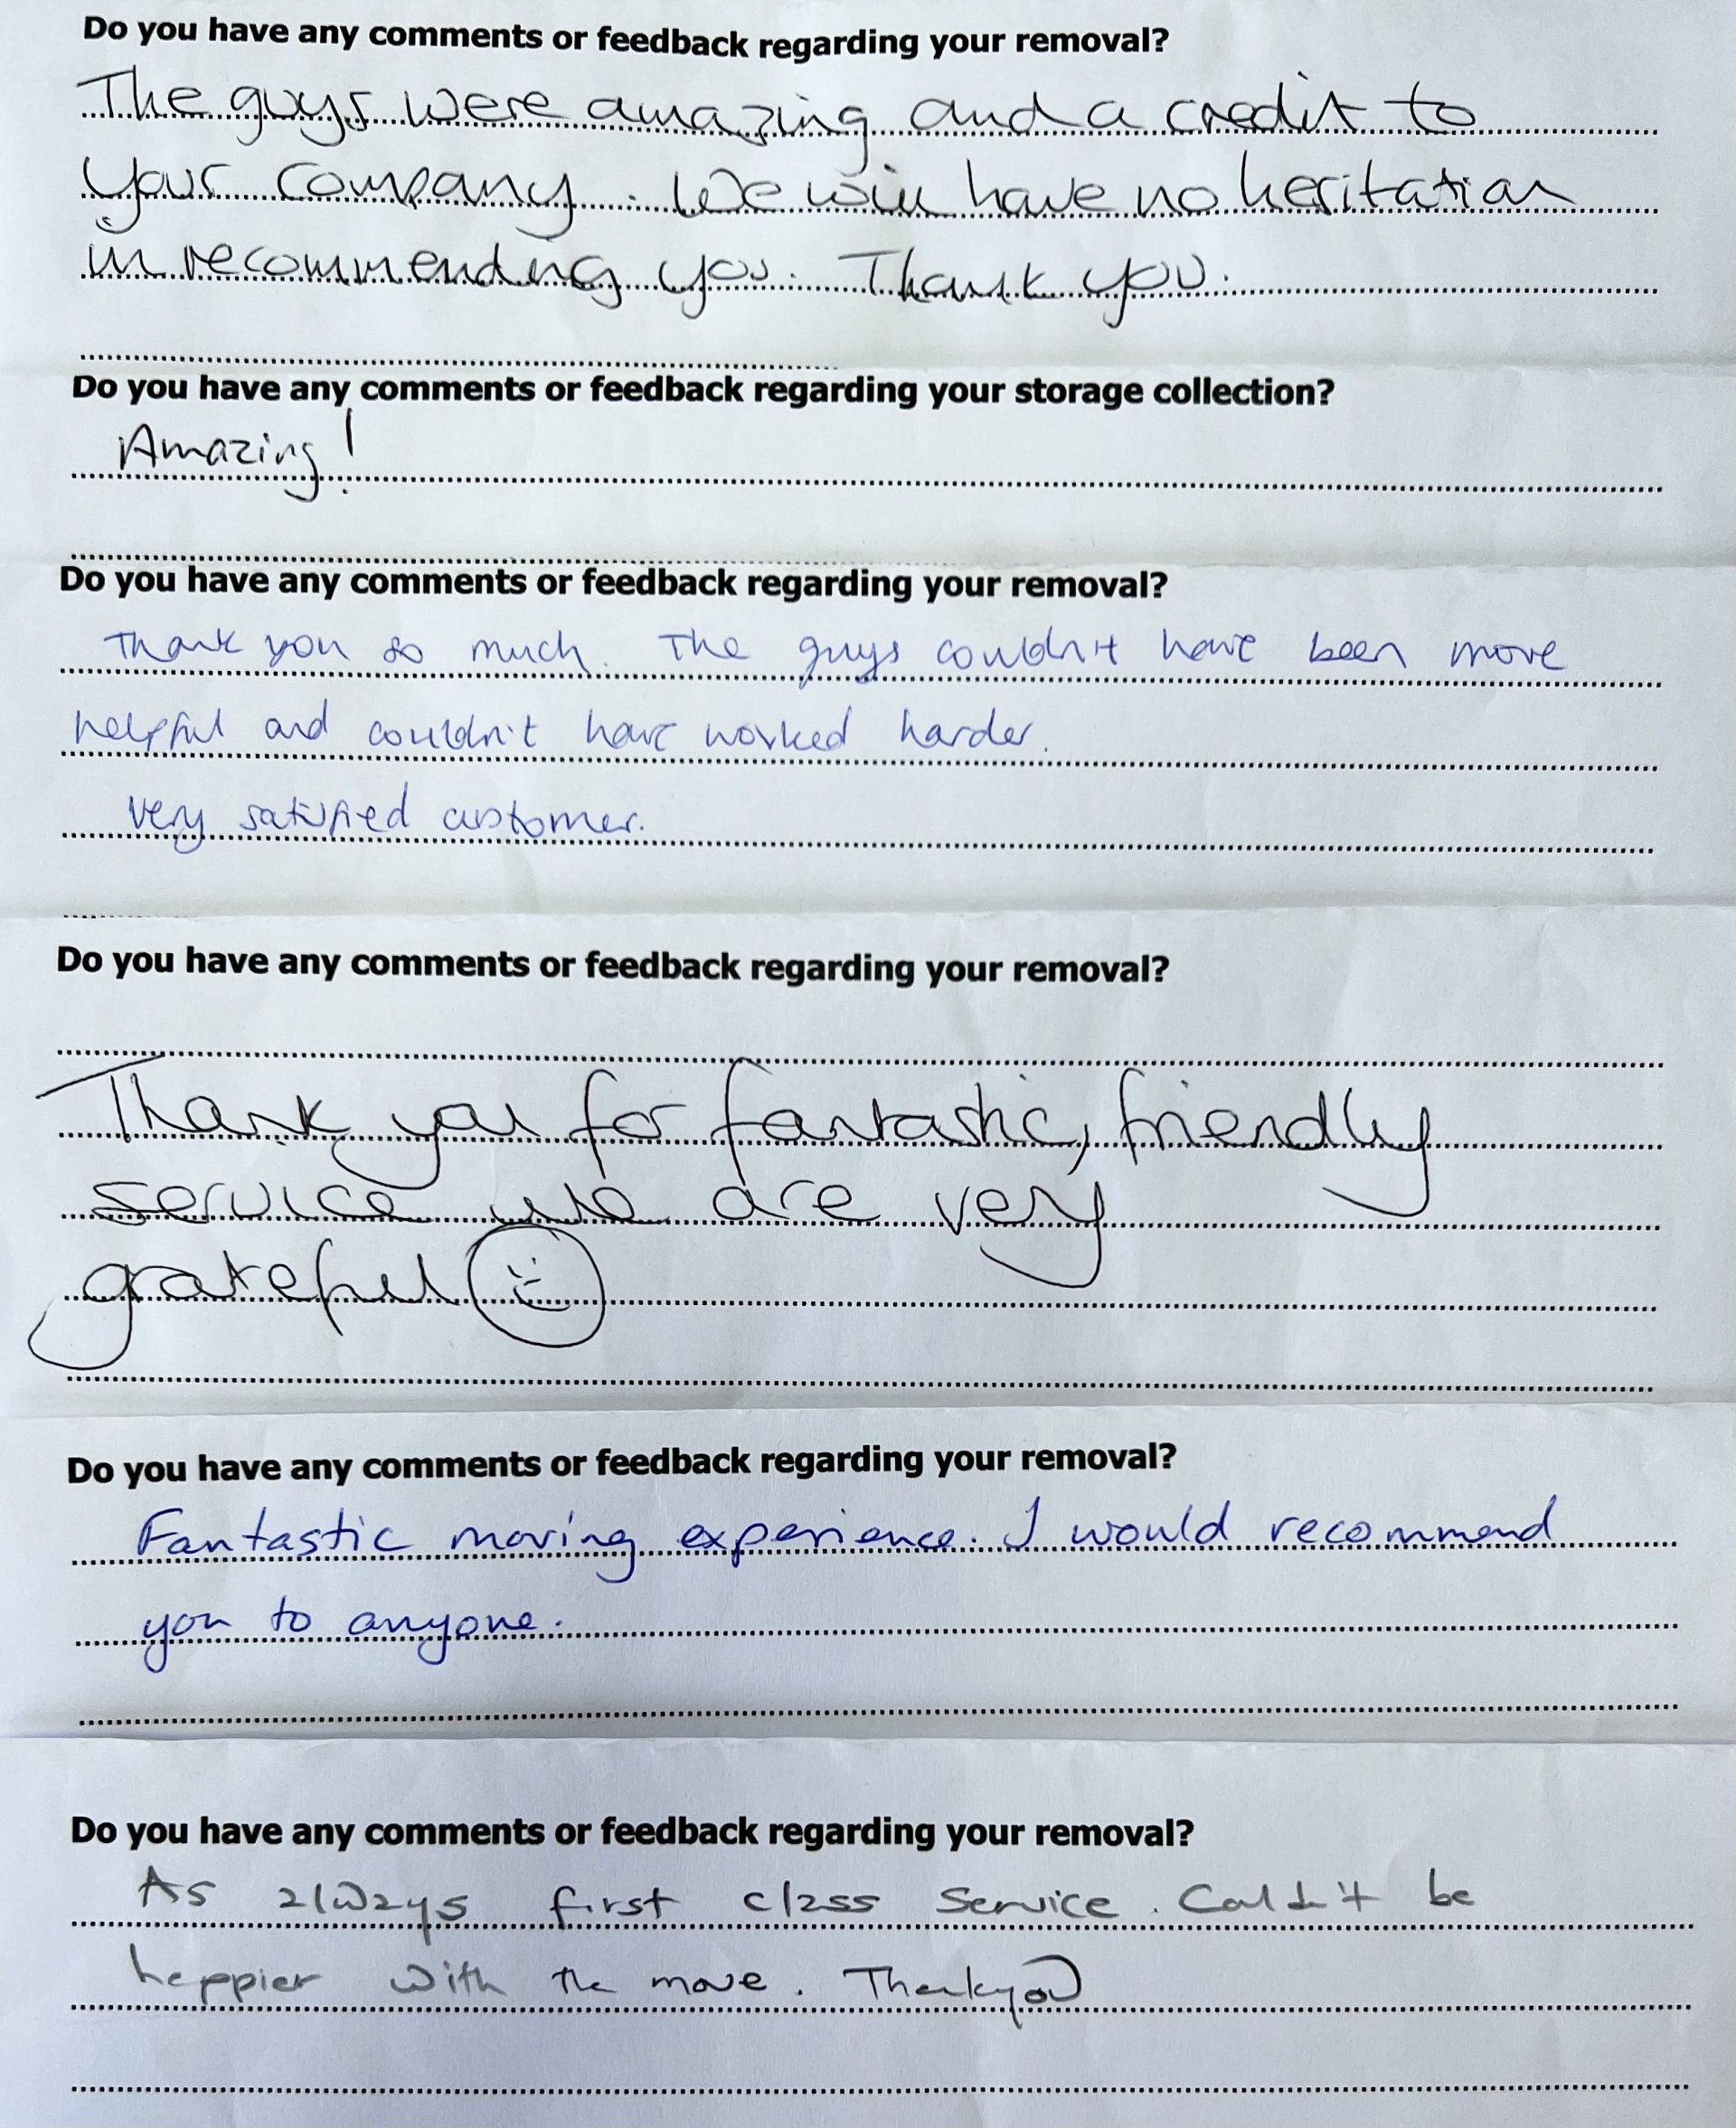 Do you have any comments or feedback regarding your removal?
The guys were amazing and a credit to
your company. We will have no hesitation
in recommending you. Thank you.
Do you have any comments or feedback regarding your storage collection?
Amazing!
Do you have any comments or feedback regarding your removal?
Thank you so much. The guys couldn't have been more
helpful and couldn't have worked harder.
Very satisfied customer.
Do you have any comments or feedback regarding your removal?
Thank you for fantastic, friendly
service we are very
grateful
Do you have any comments or feedback regarding your removal?
Fantastic moving experience. I would recommend
you to anyone.
Do you have any comments or feedback regarding your removal?
As always first class service. Couldn't be
happier with the move. Thankyou